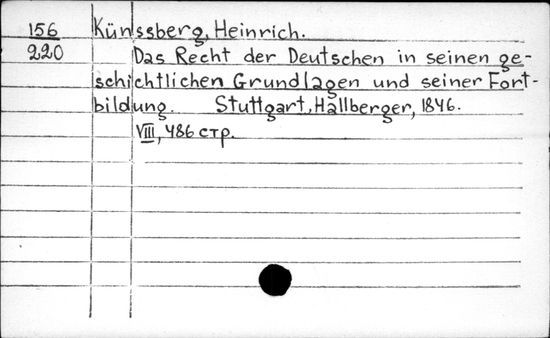 156 Künssberg, Heinrich.
220 Das Recht der Deutschen in seinen ge-
schichtlichen Grundlagen und seiner Fort-
bildung. Stuttgart, Hallberger, 1846.
VIII, 486 стр.